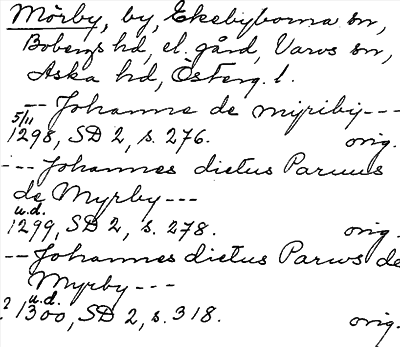 Mörby, by, Ekebyborna sn,
Bobergs hd, el. gård, Varvs sn,
Aska hd, Österg. l.
-- Johanne de myribij ---
5/11
1298, SD 2, s. 276. orig.
--- Johannes dictus Paruus
de Myrby ---
u.d.
1299, SD 2, s. 278. orig.
-- Johannes dictus Parws de
Myrby ---
u.d.
? 1300, SD 2, s. 318. orig.